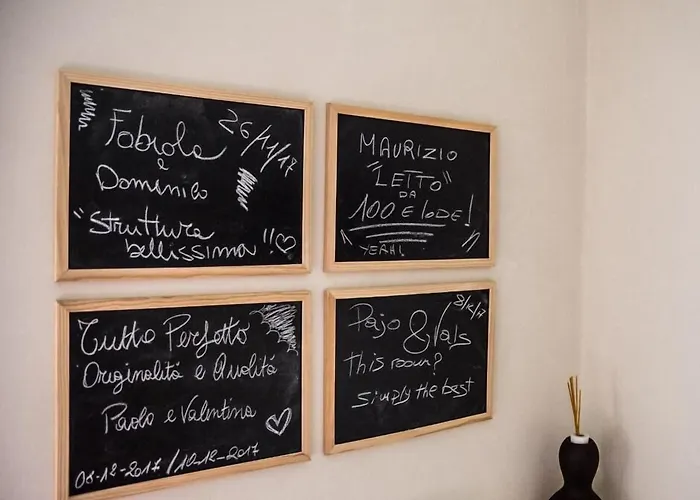 Fabiola
26/11/17
e
Domenico
"Struttura
bellissima"!!
MAURIZIO
"LETTO"
DA
100 E lODE!
YEAH!
Tutto Perfetto
Originalitá e Qualitá
Paolo e Valentina
08-12-2017/10-12-2017
Pajo & Vals
This room?
Simply the best